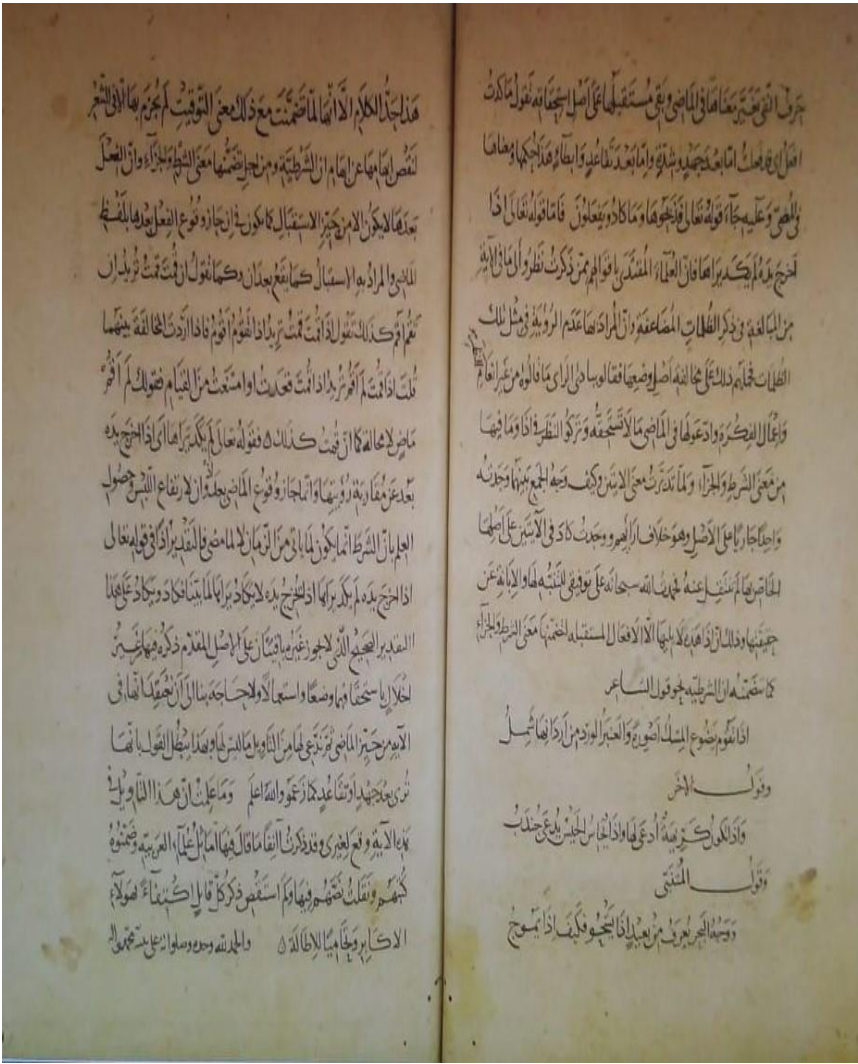 حرف النفي تغير معناها في الماضي وبقي مستقبلها على اصل استحقاقه نقول ما كدت
افعل اي قد فعلت اما بعد جهد وشدة واما بعد تقاعد وابطاء هذا حكمها
وعليه جاء قوله تعالى فذبحوها وما كادوا يفعلون فاما قوله تعالى اذا
اخرج يده لم يكد يراها فان العلماء المقتدى باقوالهم ممن ذكرت نظروا الى ما في الآية
من المبالغة في ذكر الظلمات المضاعفة وان المراد بها عدم الرؤية في مثل تلك
الظلمات فحملهم ذلك على مخالفة اصل وضعها فقالوا ببادي الراي ما قالوه من غير انعام
واعمال الفكرة وادعوا لها في الماضي ما لا تستحقه وتركوا النظر في اذا وما فيها
من معنى الشرط والجزاء ولما تدبرت معنى الايتين وكيف وجه الجمع بينهما وجدته
واحدا جاريا على الاصل وهو خلاف ارائهم ووجدت كاد في الآيتين على اصلها
الخاص بها لم تنتقل عنه فحمدت الله سبحانه على توفيقي للتنبه لها والابانة عن
حقيقتها وذلك ان اذا هذه لا يليها الا الافعال المستقبلة لتضمنها معنى الشرط والجزاء
كما تتضمنه ان الشرطية نحو قول الشاعر
اذا تقوم يضوع المسك اصورة والعنبر الورد من اردانها شمل
وقول الاخر
واذا تكون كريهة أدعى لها واذا يحاس الحيس يدعى جندب
وقول المتنبي
ووجه البحر يعرف من بعيد اذا يسجو فكيف اذا يموج
هذا حد الكلام الا انها لما تضمنت مع ذلك معنى التوقيت لم يجزم بها الا في الشعر
لنقص ابهامها عن ابهام ان الشرطية ومن اجل تضمنها معنى الشرط والجزاء وان الفعل
بعدها لا يكون الا من حيز الاستقبال كما يكون في ان جاز وقوع الفعل بعدها بلفظ
الماضي والمراد به الاستقبال كما يقع بعد ان وكما نقول ان قمت قمت تريد ان
تقم اقم كذلك تقول اذا قمت قمت تريد اذا تقوم اقوم فاذا اردت المخالفة بينهما
قلت اذا قمت لم اقم تريد اذا قمت قعدت او امتنعت من القيام فقولك لم اقم
ماض لا محالة كما ان قمت كذلك فقوله تعالى لم يكد يراها اي اذا اخرج يده
بعد عن مقاربة رؤيتها وانما جاز وقوع الماضي بعد ان لارتفاع اللبس وحصول
العلم بان الشرط انما يكون لما ياتي من الزمان لا لما مضى فالتقدير اذا في قوله تعالى
اذا اخرج يده لم يكد يراها اذا يخرج يده لا يكاد يراها لما بينا فكاد ويكاد على هذا
التقدير الصحيح الذي لا يجوز غيره باقيتان على الاصل المقدم ذكره فيها غير
اخلال باستحقاقها وضعا واستعمالا ولا حاجة بنا الى ان نعتقد انها في
الآية من حيز الماضي ثم ندعي لها من التاويل ما ليس لها وبهذا يبطل القول بانها
ترى بعد جهد او تقاعد كما زعموا والله اعلم وما علمت ان هذا التاويل في
هذه الآية وقع لغيري وقد ذكرت آنفا ما قال فيها اماثل علماء العربية وضمنوه
كتبهم ونقلت نصهم فيها ولم استقص ذكر كل قايل اكتفاء بهولاء
الاكابر وتحاميا للاطالة والحمد لله وحده وصلواته على محمد واله